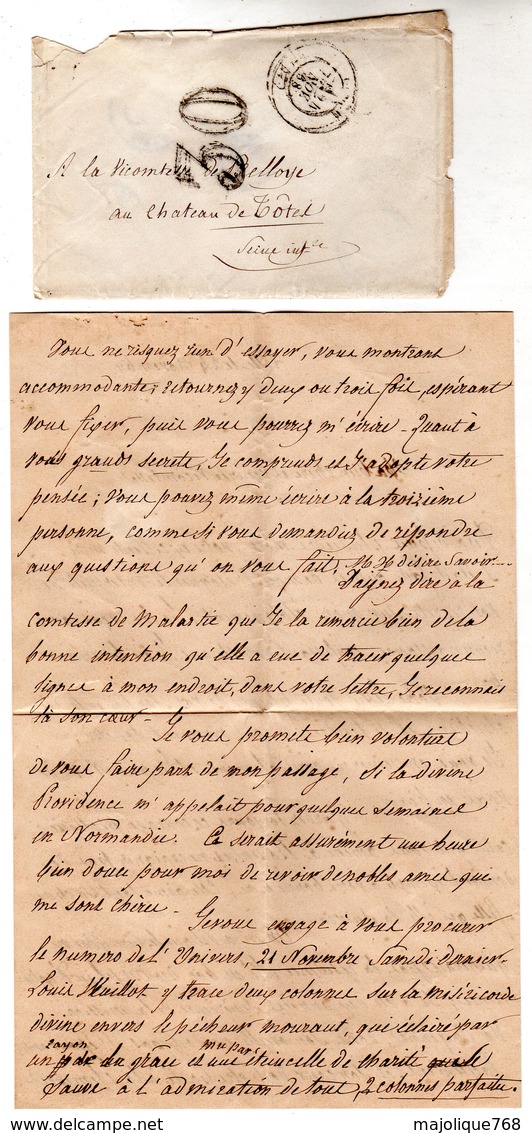 30
A la Vicomtesse de Belloye
au Chateau de Tôtes
Seine infre
Vous ne risquez rien d'essayer, vous montrant
accommodante; retournez y deux ou trois fois, espérant
vous fixer, puis vous pourrez m'écrire - Quant à
vos grands secrets, Je comprends et J'adopte votre
pensée; vous pouvez même écrire à la troizième
personne, comme si vous demandiez de répondre
aux questions qu'on vous fait; M. H désire savoir....
Daignez dire à la
comtesse de Malartic que Je la remercie bien de la
bonne intention qu'elle a eue de tracer quelques
lignes à mon endroit, dans votre lettre, Je reconnais
là son cœur -
Je vous promets bien volontiers
de vous faire part de mon passage, si la divine
Providence m'appelait pour quelques semaines
en Normandie. Ce serait assurément une heure
bien douce pour moi de revoir de nobles ames qui
me sont chères -
Je vous engage à vous procurer
le numero de l'Univers, 21 Novembre Samedi dernier -
Louis Veuillot y trace deux colonnes sur la miséricorde
divine envers le pécheur mourant, qui éclairé par
un rayon de la grâce et mu par une étincelle de charité se
sauve à l'admiration de tous, 2 colonnes parfaites.
majolique768
www.delcampe.net